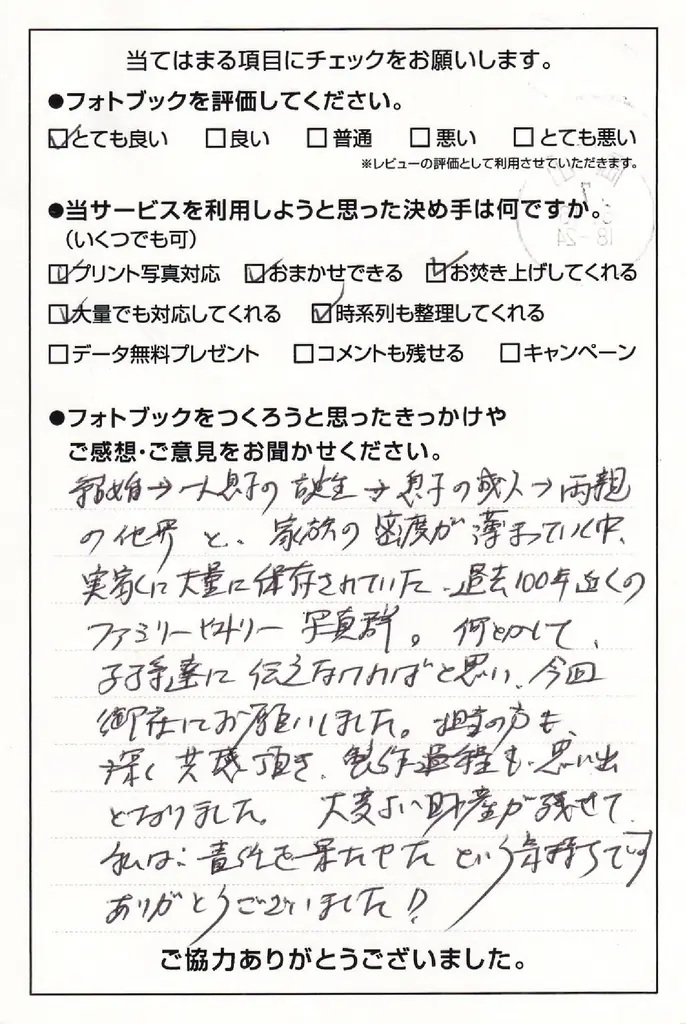 当てはまる項目にチェックをお願いします。
●フォトブックを評価してください。
☑とても良い □良い □普通 □悪い □とても悪い
※レビューの評価として利用させていただきます。
●当サービスを利用しようと思った決め手は何ですか。
（いくつでも可）
☑プリント写真対応 ☑おまかせできる ☑お焚き上げしてくれる
☑大量でも対応してくれる ☑時系列も整理してくれる
□データ無料プレゼント □コメントも残せる □キャンペーン
●フォトブックをつくろうと思ったきっかけや
ご感想・ご意見をお聞かせください。
結婚→一人息子の誕生→息子の成人→両親
の他界と、家族の密度が薄まっていく中、
実家に大量に保存されていた、過去100年近くの
ファミリーヒストリー写真群。何とかして、
子子孫達に伝えなければと思い、今回
御社にお願いしました。担当の方も、
深く共感頂き、製作過程も、思い出
となりました。大変よい財産が残せて、
私は、責任を果たせたという気持ちです
ありがとうございました!!
ご協力ありがとうございました。